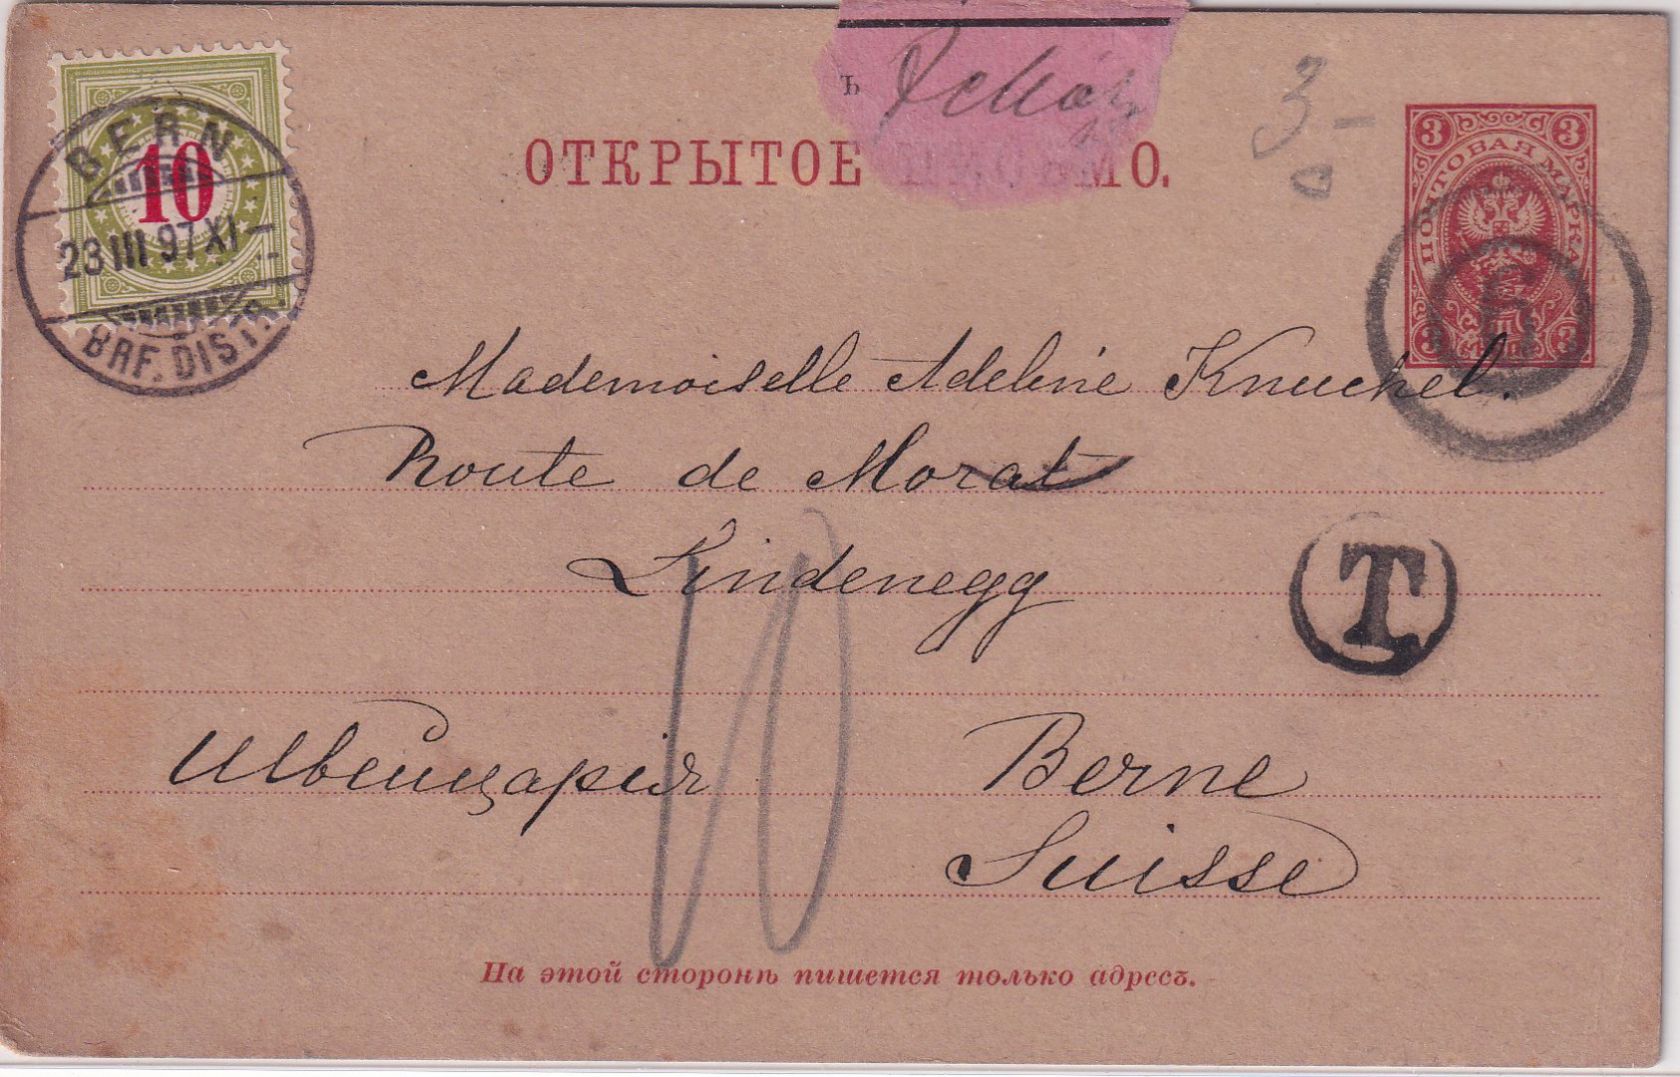 ъ
ОТКРЫТОЕ ПИСЬМО.
3 -
3 3
ПОЧТОВАЯ МАРКА
3 3
10
BERN
23 III 97 XI -
BRF. DISTR.
Mademoiselle Adeline Knuchel.
Route de Morat
Lindenegg
T
10
Швейцарія
Berne
Suisse
На этой сторонѣ пишется только адресъ.